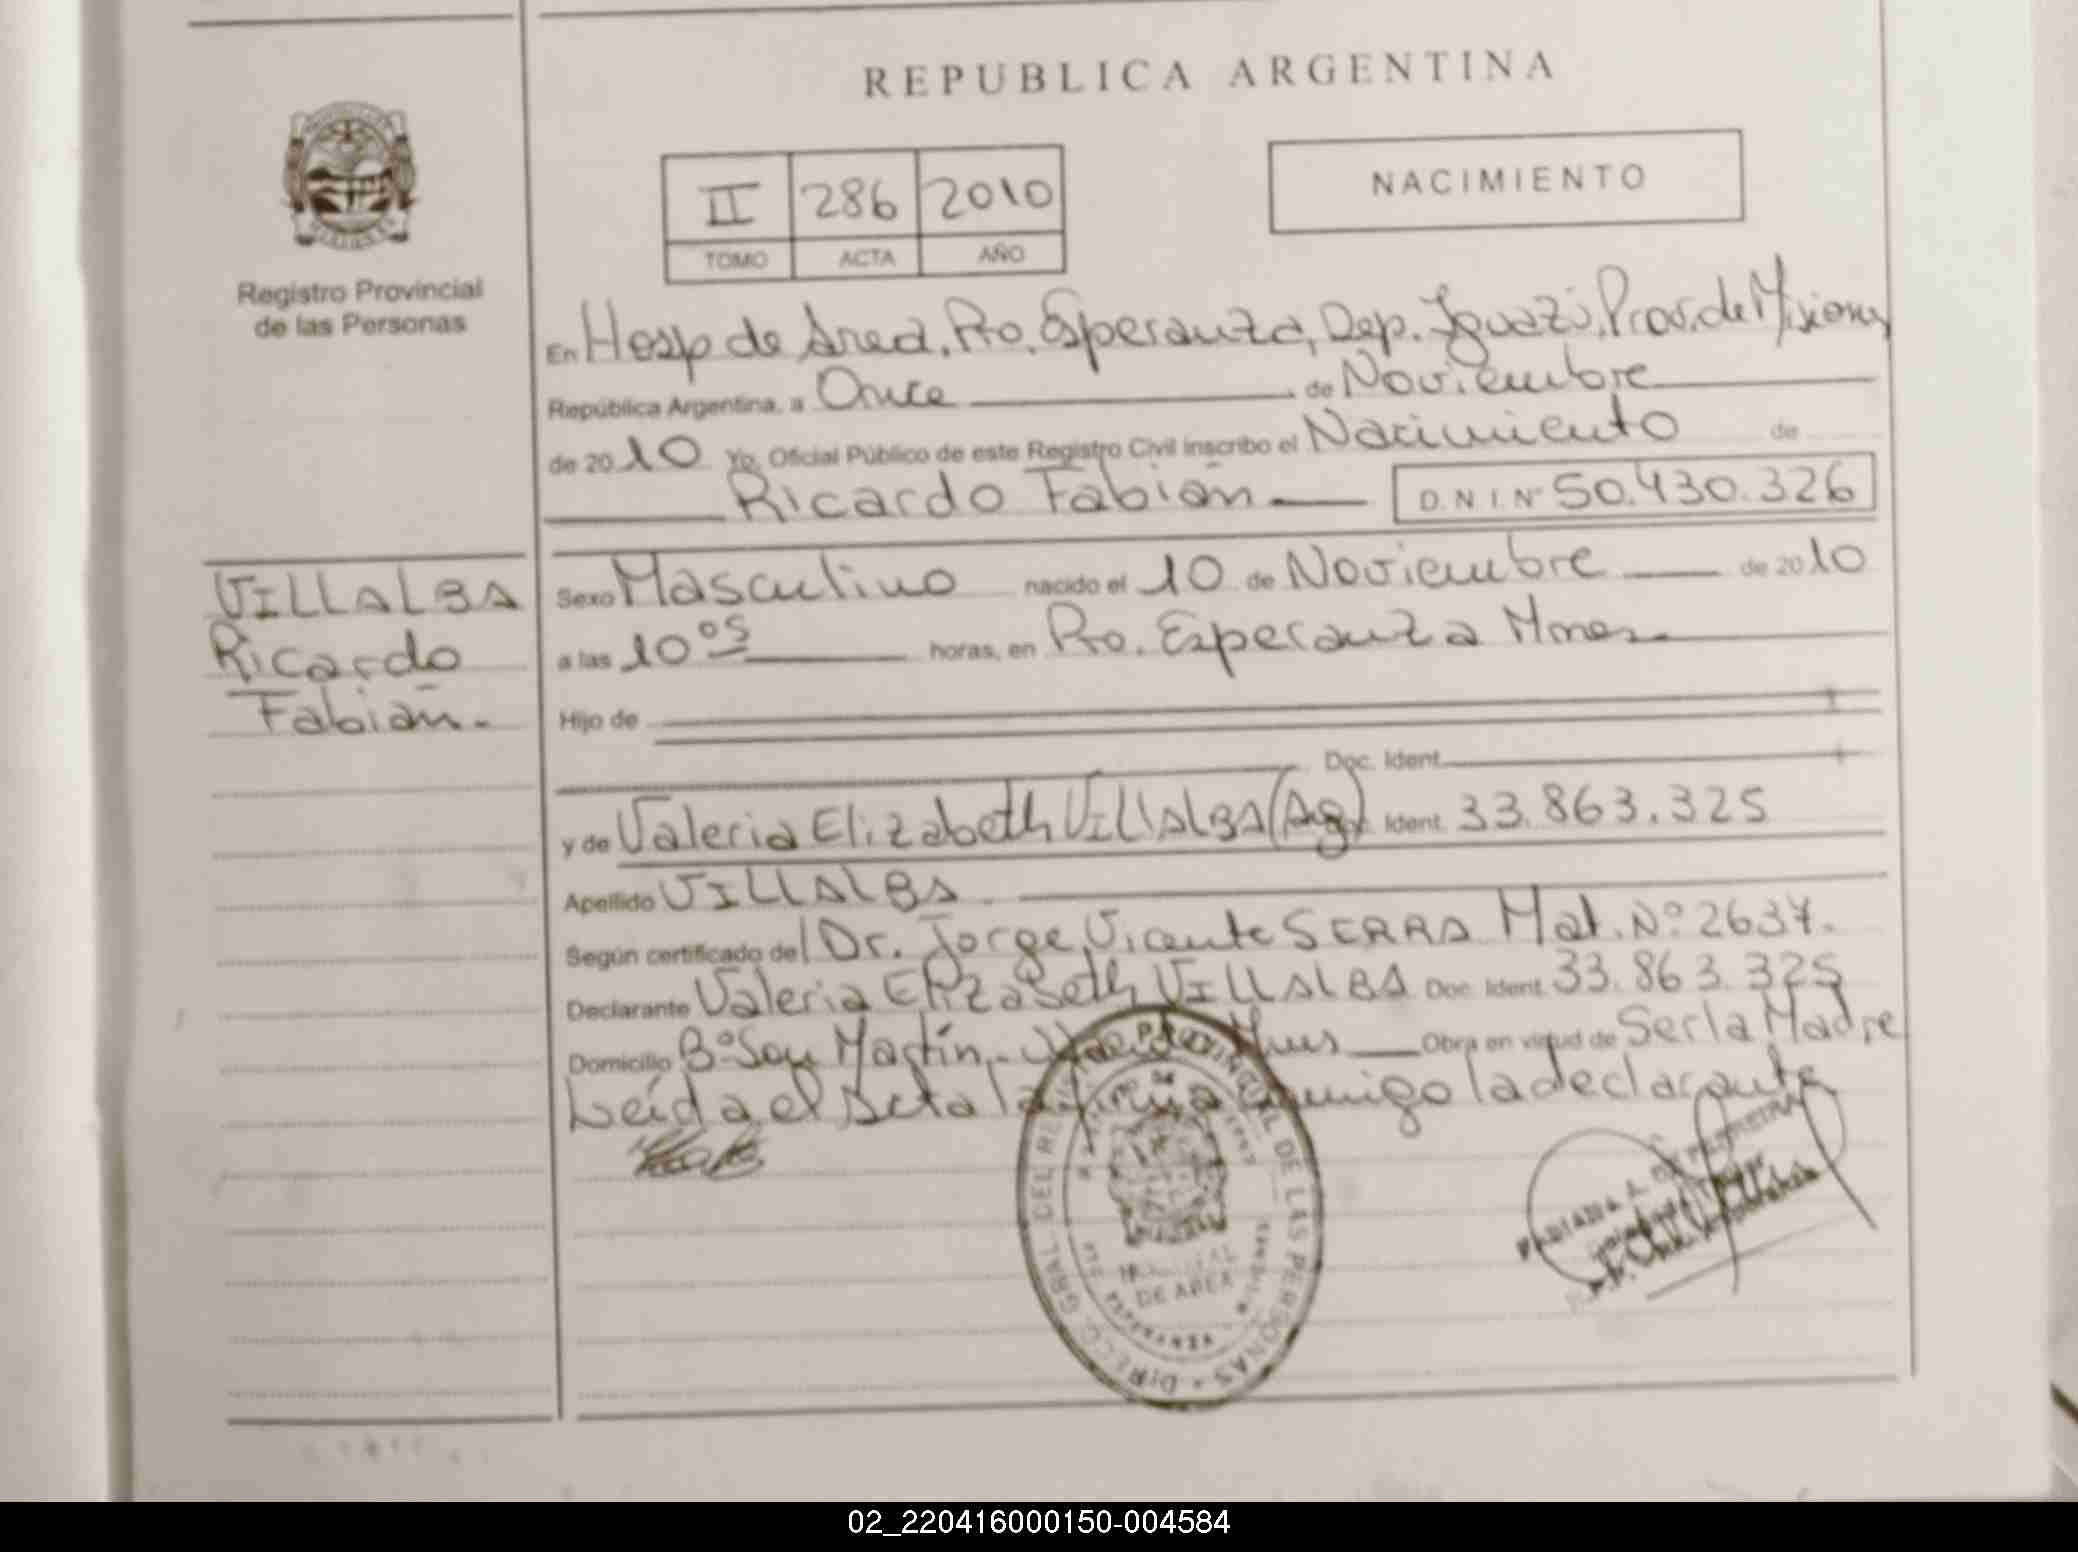 REPUBLICA ARGENTINA
II 286 2010
TOMO ACTA AÑO
NACIMIENTO
Registro Provincial
de las Personas
VILLALBA
Ricardo
Fabián.
En Hosp de Area, Pto. Esperanza, Dep. Iguazú, Prov. de Misiones
República Argentina, a Once de Noviembre
de 2010 Yo, Oficial Público de este Registro Civil inscribo el Nacimiento de
Ricardo Fabián D.N.I. Nº 50.430.326
Sexo Masculino nacido el 10 de Noviembre de 2010
a las 10⁰⁵ horas, en Pto. Esperanza Mnes.
Hijo de
Doc. Ident.
y de Valeria Elizabeth VILLALBA (Ag) Ident. 33.863.325
Apellido VILLALBA
Según certificado del Dr. Jorge Vicente SERRA Mat. Nº 2637.
Declarante Valeria Elizabeth VILLALBA Doc. Ident. 33.863.325
Domicilio Bº San Martín - Obra en virtud de Ser la Madre
Leída el Acta la firma conmigo la declarante
DIRECC. GRAL. DEL REG. PROVINCIAL DE LAS PERSONAS
HOSPITAL
DE AREA
02_220416000150-004584